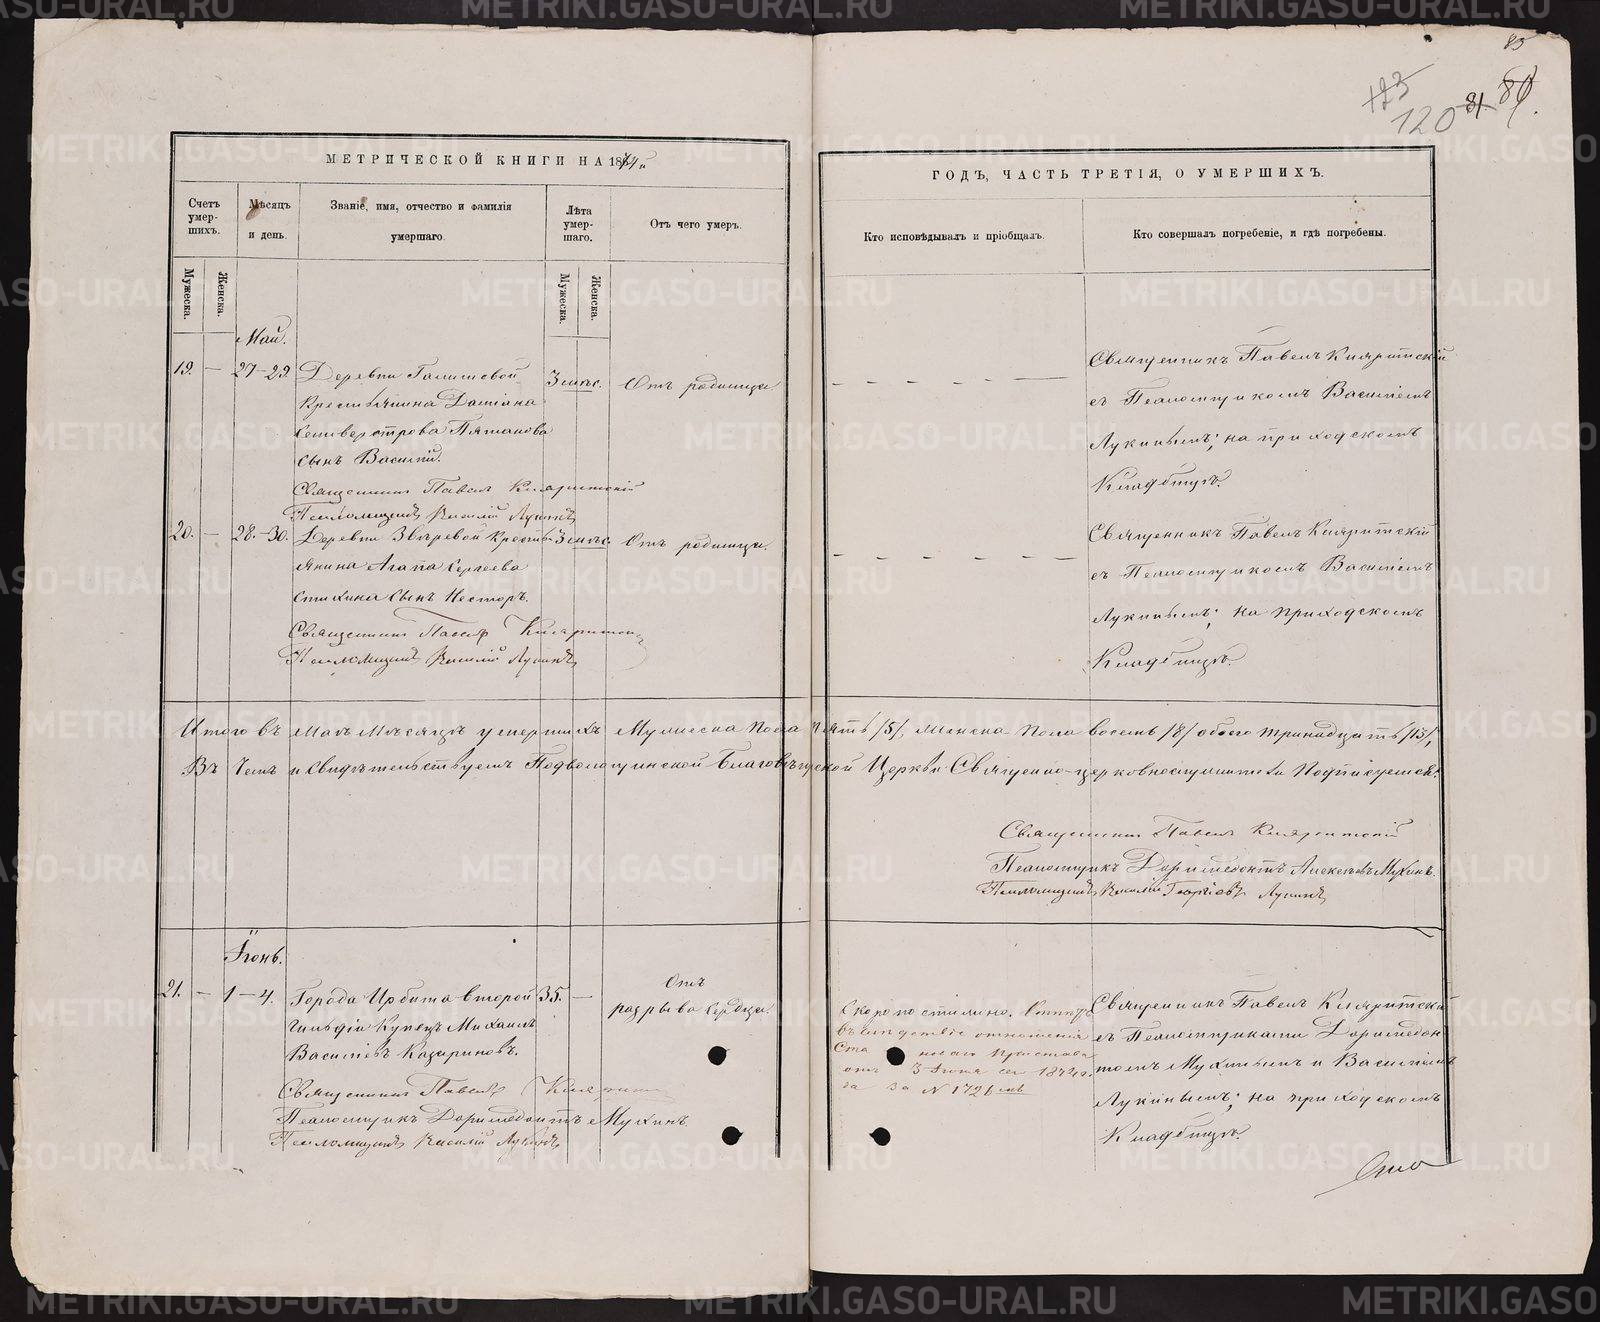 85
123
120
81
80
МЕТРИЧЕСКОЙ КНИГИ НА 1874й
Счетъ умер-шихъ.
Мѣсяцъ и день.
Званіе, имя, отчество и фамилія умершаго.
Лѣта умер-шаго.
Отъ чего умеръ.
Мужеска.
Женска.
Мужеска.
Женска.
Май.
19. — 27-29. Деревни Галишевой 3 мѣс. Отъ родимца
Крестьянина
Селиверстрова Пятанова
сынъ Василій.
Священникъ Павелъ
Псаломщикъ Василій Лукинъ
20. — 28.-30. Деревни Звѣревой Кресть- 3 мѣс. Отъ родимца.
янина Агапа Сергеева
Стихина сынъ Несторъ.
Священникъ Павелъ
Псаломщикъ Василій Лукинъ
Итого въ маѣ мѣсяцѣ умершихъ мужеска пола пять /5/, женска пола восемь /8/ обоего тринадцать /13/,
Въ чемъ и свидѣтельствуемъ Подволошинской Благовѣщенской Церкви Священно-церковнослужители подписуемся:
Священникъ Павелъ
Псаломщикъ Доримедонтъ Алексѣевъ Мухинъ.
Псаломщикъ Василій Георгіевъ Лукинъ
Іюнь.
21. — 1-4. Города Ирбита второй 35. — Отъ
гильдіи Купецъ Михаилъ разрыва сердца.
Василіевъ Казариновъ.
Священникъ Павелъ
Псаломщикъ Доримедонтъ Мухинъ
Псаломщикъ Василій Лукинъ
ГОДЪ, ЧАСТЬ ТРЕТІЯ, О УМЕРШИХЪ.
Кто исповѣдывалъ и пріобщалъ.
Кто совершалъ погребеніе, и гдѣ погребены.
Священникъ Павелъ
съ Псаломщикомъ Василіемъ
Лукинымъ; на приходскомъ
Кладбищѣ.
Священникъ Павелъ
съ Псаломщикомъ Василіемъ
Лукинымъ; на приходскомъ
Кладбищѣ.
Скоропостижно.
въ слѣдствіе отношенія
Пристава
отъ 3 Іюня 1874 г.
за № 1726
Священникъ Павелъ
съ Псаломщиками Доримедон-
томъ Мухинымъ и Василіемъ
Лукинымъ; на приходскомъ
Кладбищѣ.
METRIKI.GASO-URAL.RU